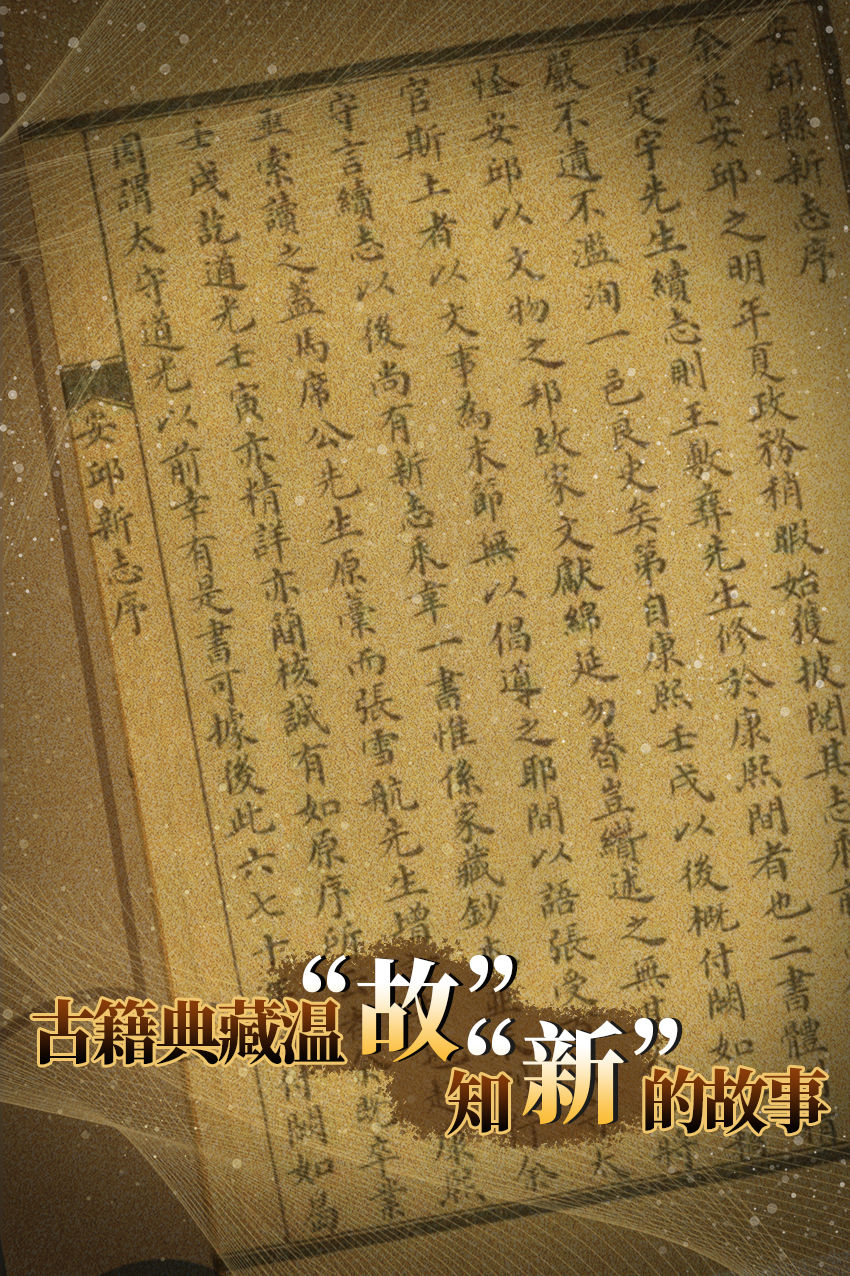 安邱縣新志序
余莅安邱之明年夏政務稍暇始獲披閱其志乘前
馬定宇先生續志則王敷彝先生修於康熙間者也二書體
嚴不遺不濫洵一邑良史矣第自康熙壬戌以後概付闕如
怪安邱以文物之邦故家文獻綿延勿替豈纘述之無
官斯土者以文事為末節無以倡導之耶間以語張受
守言續志以後尚有新志來章一書惟係家藏鈔本
亟索讀之蓋馬席公先生原稾而張雪航先生增
壬戌訖道光壬寅亦精詳亦簡核誠有如原序所
周謂太守道光以前幸有是書可據後此六七十年
付闕如為
卒業
康熙
余
太
安邱新志序
古籍典藏温“故”
知“新”的故事